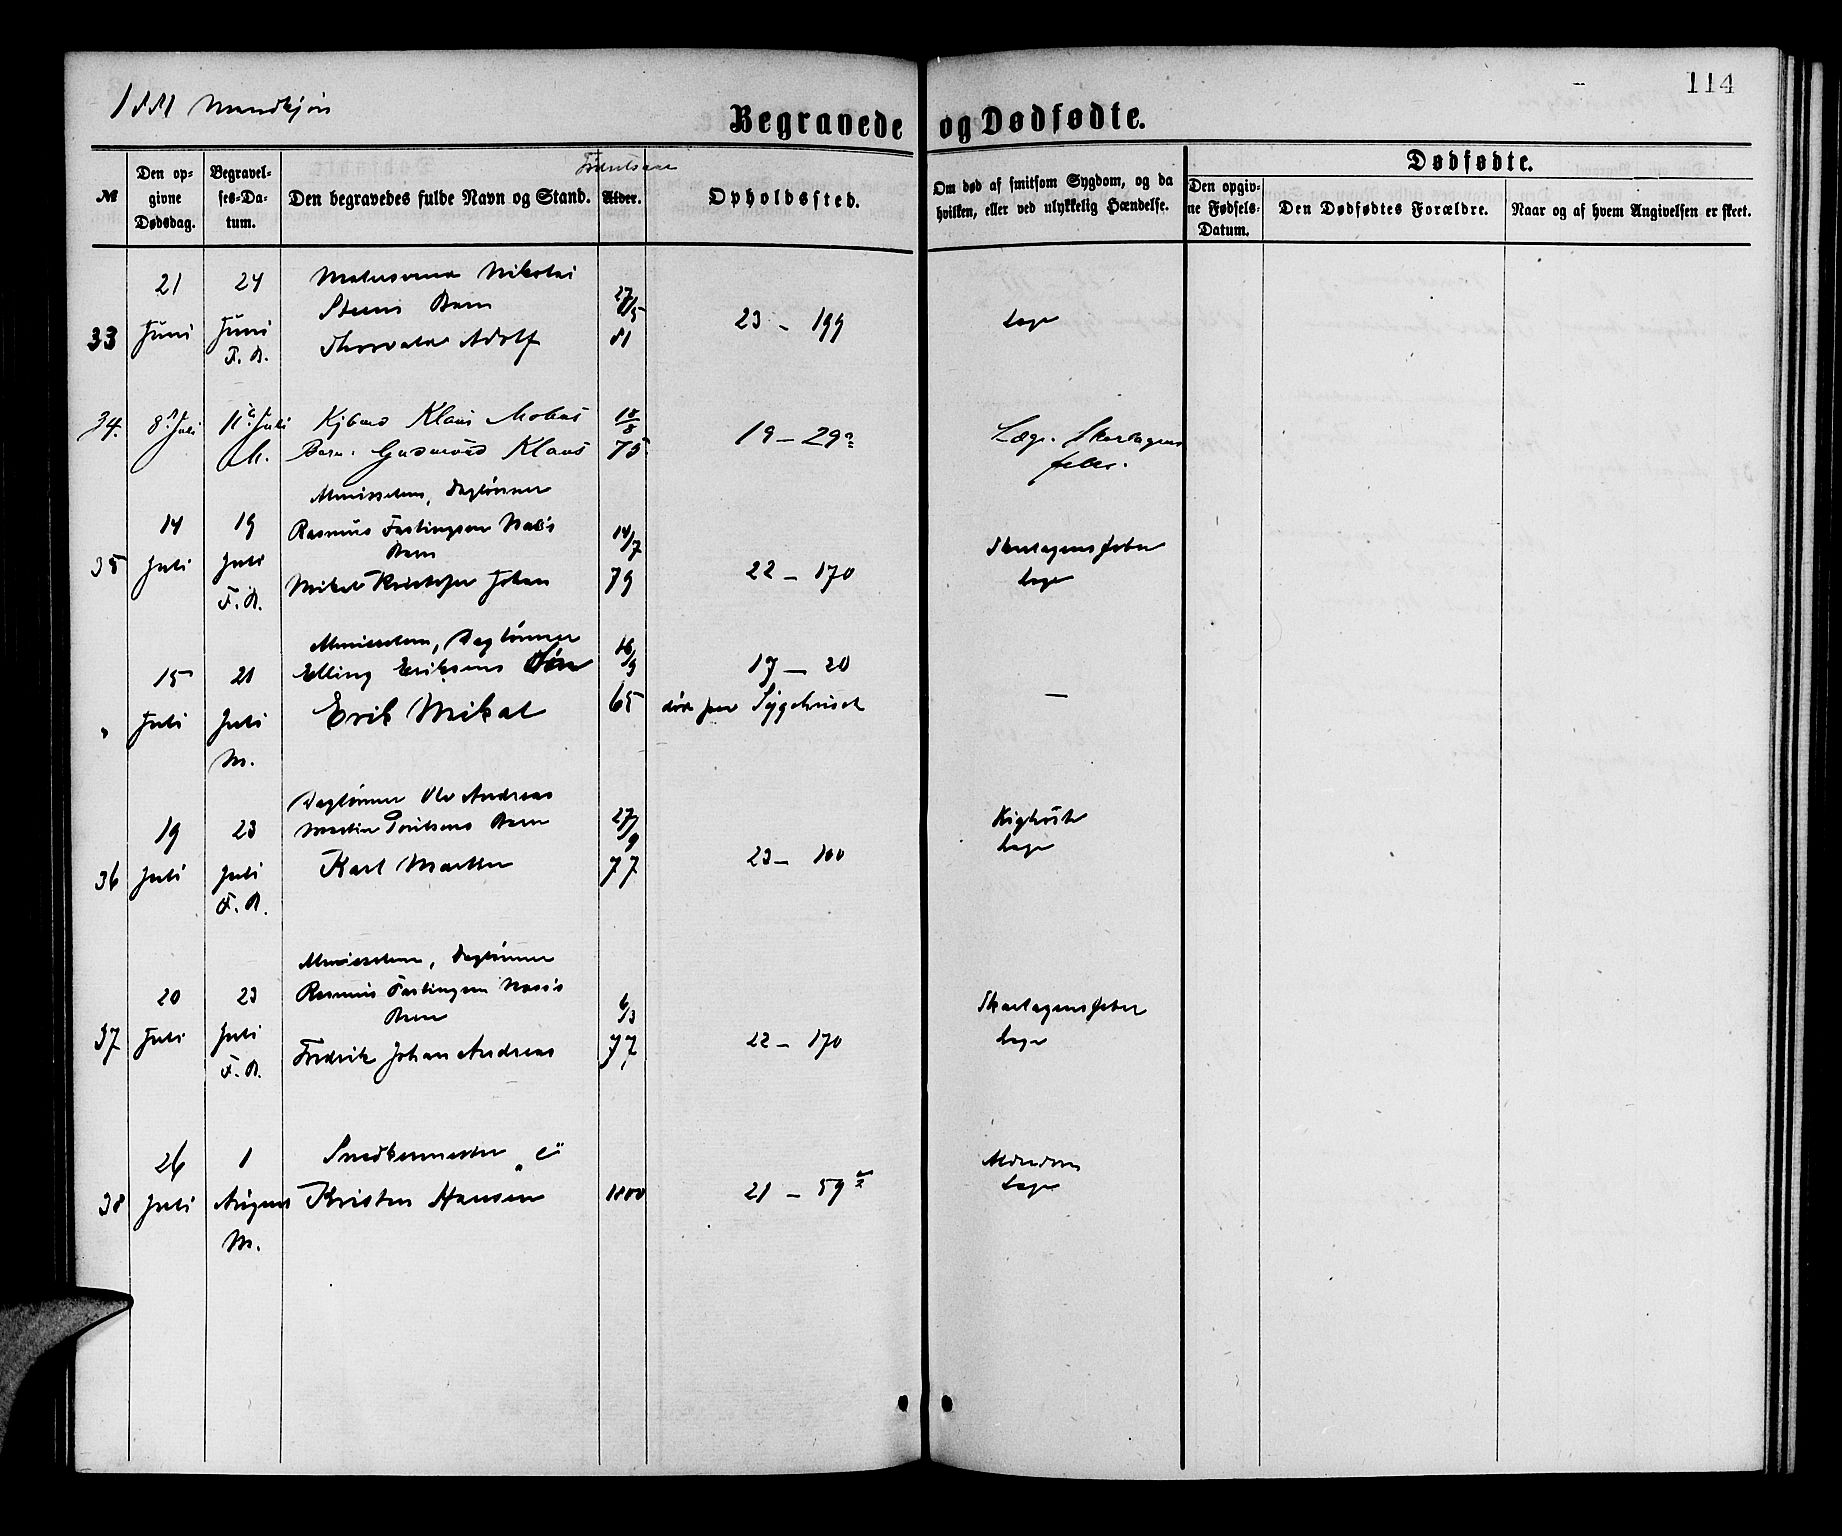 1881 Mandkjøn
114
Begravede og Dødfødte.
№
Den opgivne Dødsdag.
Begravelses-Datum.
Den begravedes fulde Navn og Stand.
Fødselsaar
Alder.
Opholdssted.
Om død af smitsom Sygdom, og da hvilken, eller ved ulykkelig Hændelse.
Dødfødte.
Den opgivne Fødsels-Datum.
Den Dødfødtes Forældre.
Naar og af hvem Angivelsen er skeet.
33
21 Juni
24 Juni F. A.
Nikolai
Barn
Thorvald Adolf
27/5 81
23 - 199
Læge
34.
8. Juli
11te Juli M.
Klaus
Barn. Klaus
18/8 75
19 - 29a
Læge. Skarlagens
feber.
35
14 Juli
19 Juli F. A.
Almisselem, Daglønner
Rasmus Fastingsen
Barn
Mikal Kristofer Johan
14/7 79
22 - 170
Skarlagensfeber
Læge
"
15 Juli
21 Juli M.
Almisselem, Daglønner
Elling Eriksens Søn
Erik Mikal
16/9 65
17 - 20
død paa Sygehuset
—
36
19 Juli
23 Juli F. A.
Daglønner Ole Andreas
Martin Barn
Karl Martin
27/9 77
23 - 100
Kighoste
Læge
37
20 Juli
23 Juli F. A.
Almisselem, Daglønner
Rasmus Fastingsen
Barn
Fredrik Johan Andreas
6/3 77
22 - 170
Skarlagensfeber
Læge
38
26 Juli
1 August M.
Snedkermester
Kristen Hansen
1800
21 - 59
Læge